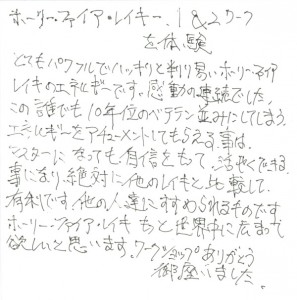 ホーリー・ファイア・レイキー、1&2ワーク
を体験
とてもパワフルでハッキリと判り易いホーリーファイア
レイキのエネルギーです。感動の連続でした。
この誰でも10年位のベテラン並みにしてしまう
エネルギーをアチューメントしてもらえる事は、
マスターになっても自信をもって、活やくできる
事になり、絶対に他のレイキと比較して、
有利です。他の人達にすすめられるものです
ホーリー・ファイア・レイキ もっと世界中に広まって
欲しいと思います。ワークショップありがとう
御座いました。